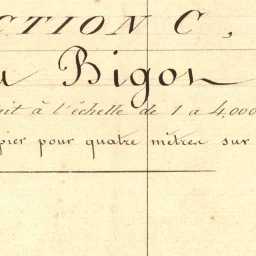 CTION C,
u Bigon
ait à l'échelle de 1 a 4,000
pier pour quatre mètres sur